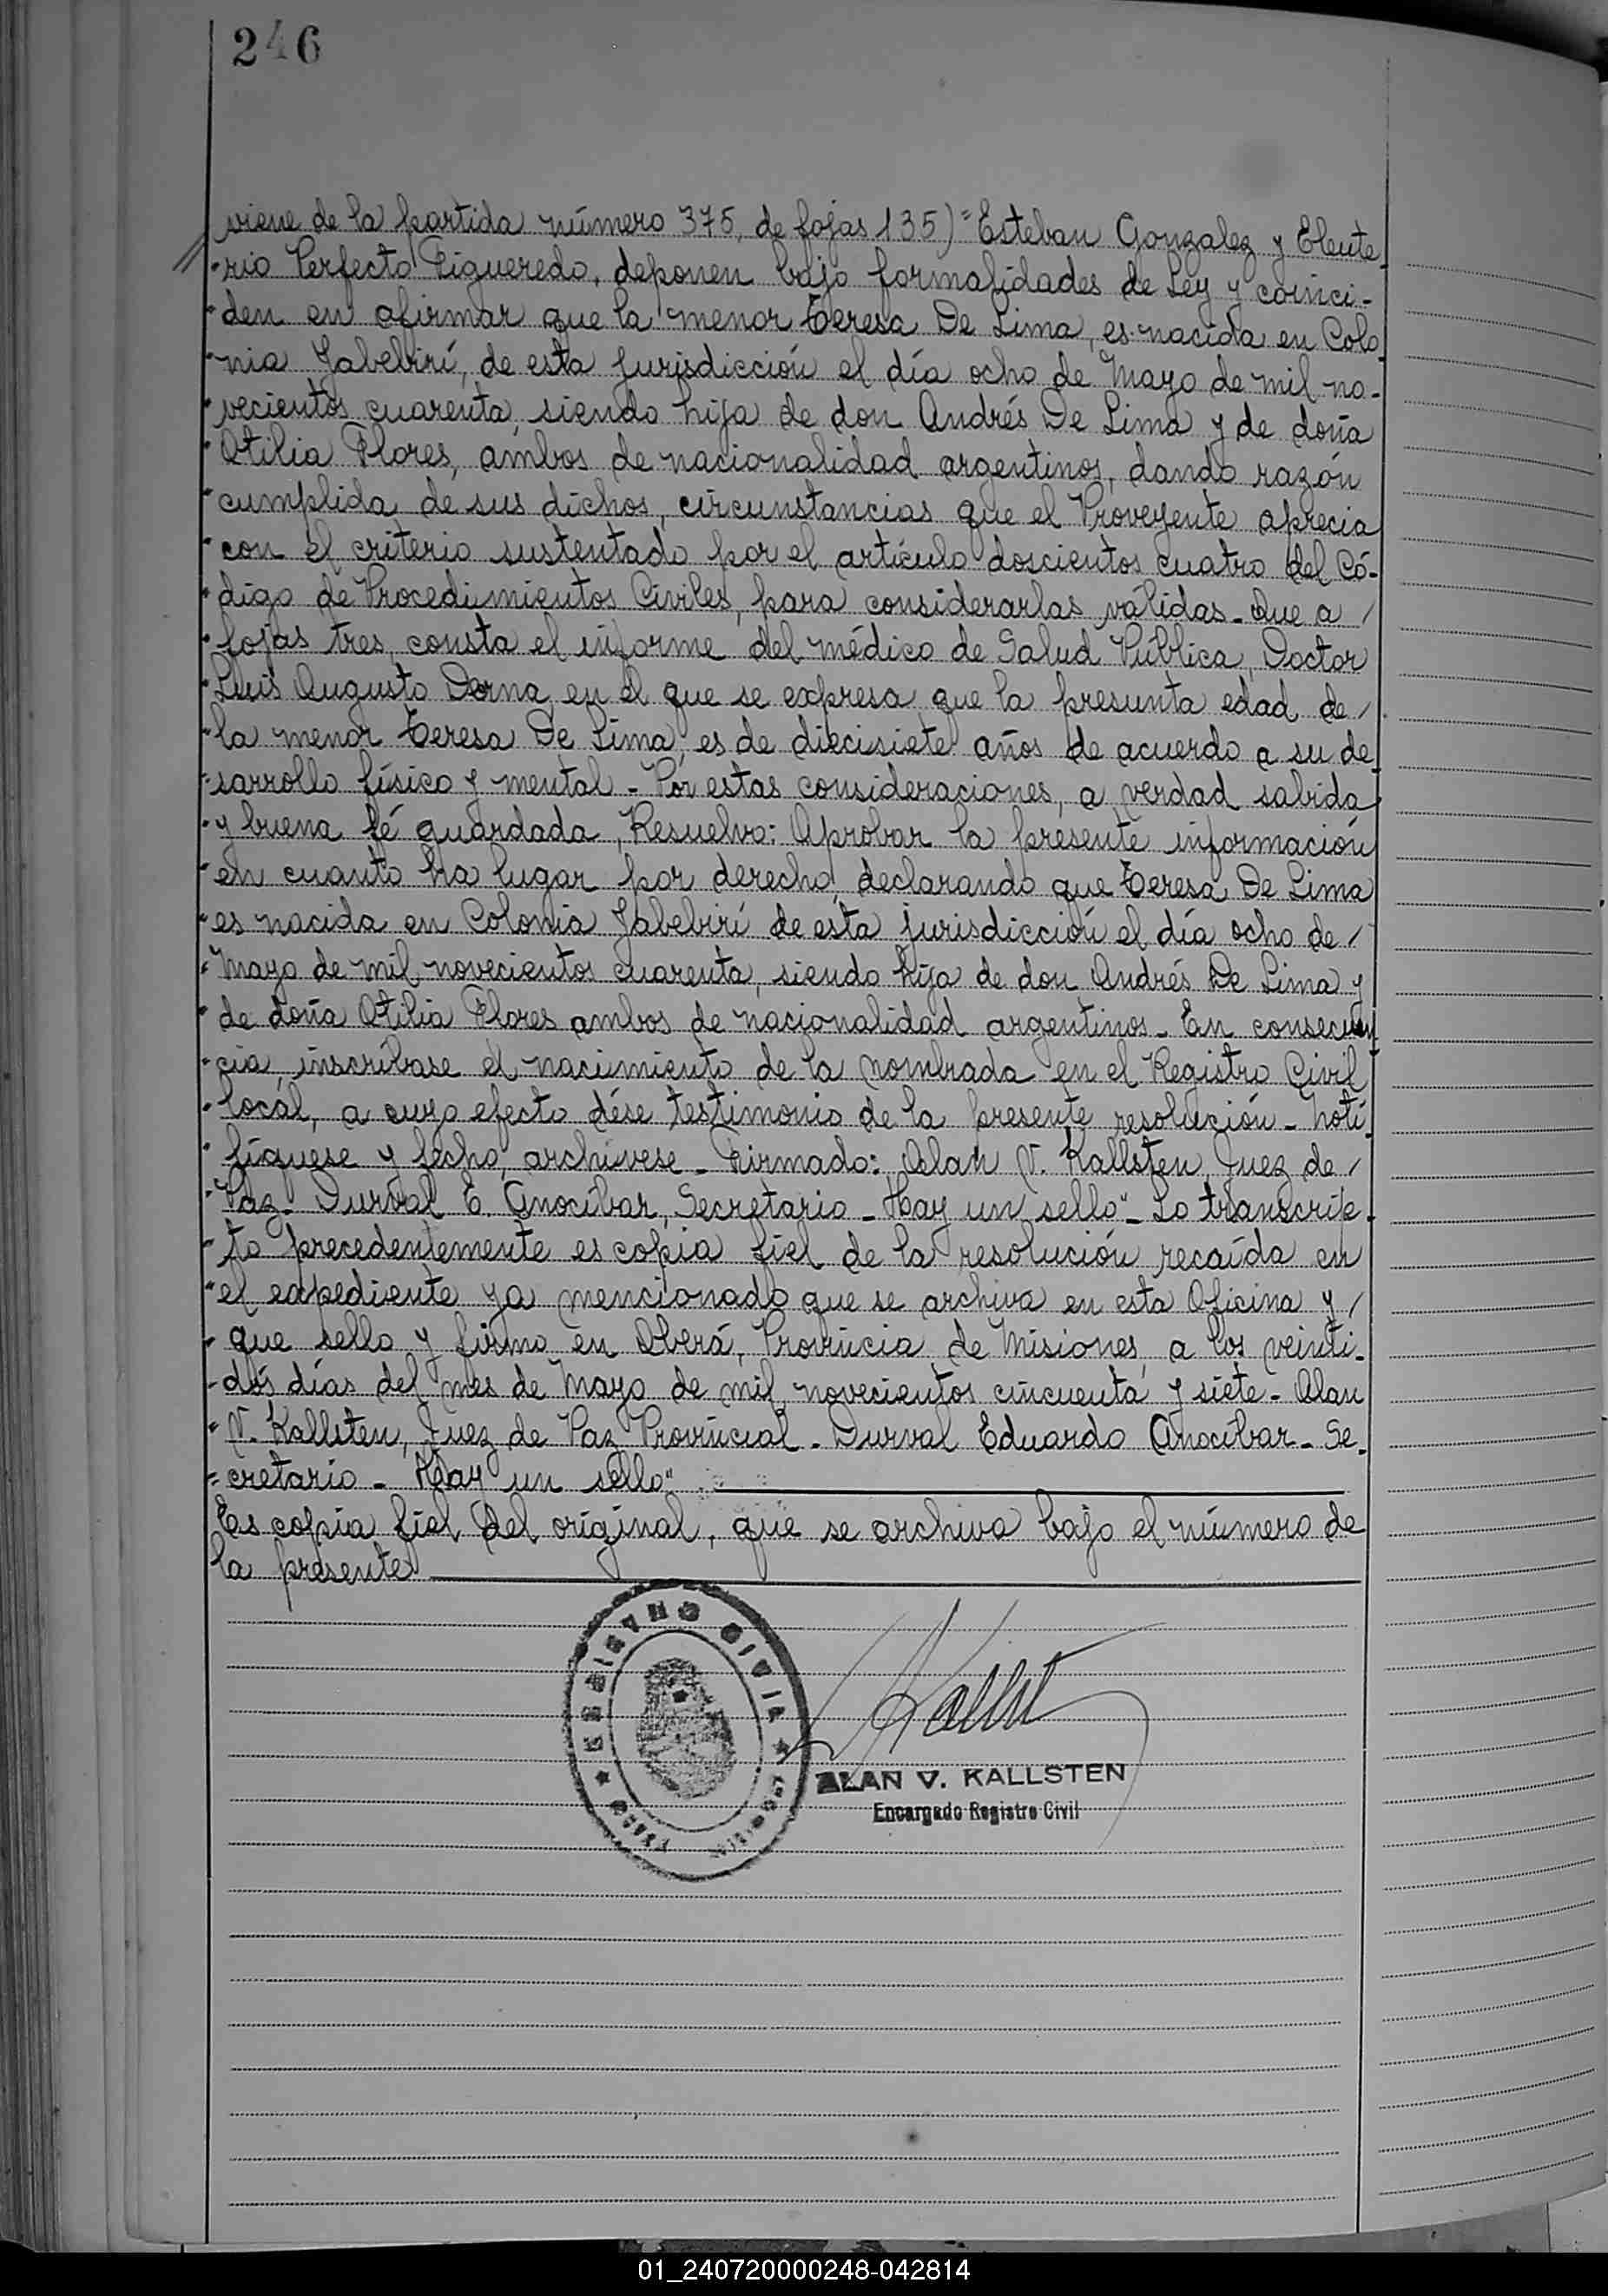 246
viene de la partida número 375, de fojas 135)="Esteban Gonzalez y Eleute-
"rio Perfecto Figueredo, deponen bajo formalidades de Ley y coinci-
"den en afirmar que la menor Teresa De Lima, es nacida en Colo-
"nia Yabebirí, de esta jurisdicción el día ocho de Mayo de mil no-
"vecientos cuarenta, siendo hija de don Andrés De Lima y de doña
"Otilia Flores, ambos de nacionalidad argentinos, dando razón
"cumplida de sus dichos, circunstancias que el Proveyente aprecia
"con el criterio sustentado por el artículo doscientos cuatro del Có-
"digo de Procedimientos Civiles, para considerarlas válidas_ Que a /
"fojas tres, consta el informe del médico de Salud Pública, Doctor
"Luis Augusto Derna, en el que se expresa que la presunta edad de /
"la menor Teresa De Lima, es de diecisiete años de acuerdo a su de-
"sarrollo físico y mental_ Por estas consideraciones, a verdad sabida
"y buena fé guardada, Resuelvo: Aprobar la presente información
"en cuanto ha lugar por derecho, declarando que Teresa De Lima
"es nacida en Colonia Yabebirí de esta jurisdicción el día ocho de /
"Mayo de mil novecientos cuarenta, siendo hija de don Andrés De Lima y
"de doña Otilia Flores ambos de nacionalidad argentinos_ En consecuen-
"cia, inscríbase el nacimiento de la nombrada en el Registro Civil
"local, a cuyo efecto dése testimonio de la presente resolución_ Noti-
"fíquese y fecho, archívese_ Firmado: Alan V. Kallsten, Juez de /
"Paz_ Durval E. Anocíbar, Secretario_ Hay un sello"_ Lo transcrip-
"to precedentemente es copia fiel de la resolución recaída en
"el expediente ya mencionado que se archiva en esta Oficina y /
"que sello y firmo en Oberá, Provincia de Misiones, a los veinti-
"dós días del mes de Mayo de mil novecientos cincuenta y siete_ Alan
"V. Kallsten, Juez de Paz Provincial_ Durval Eduardo Anocíbar_ Se-
"cretario_ Hay un sello"
Es copia fiel del original, que se archiva bajo el número de
la presente
REGISTRO CIVIL
ALAN V. KALLSTEN
Encargado Registro Civil
01_240720000248-042814